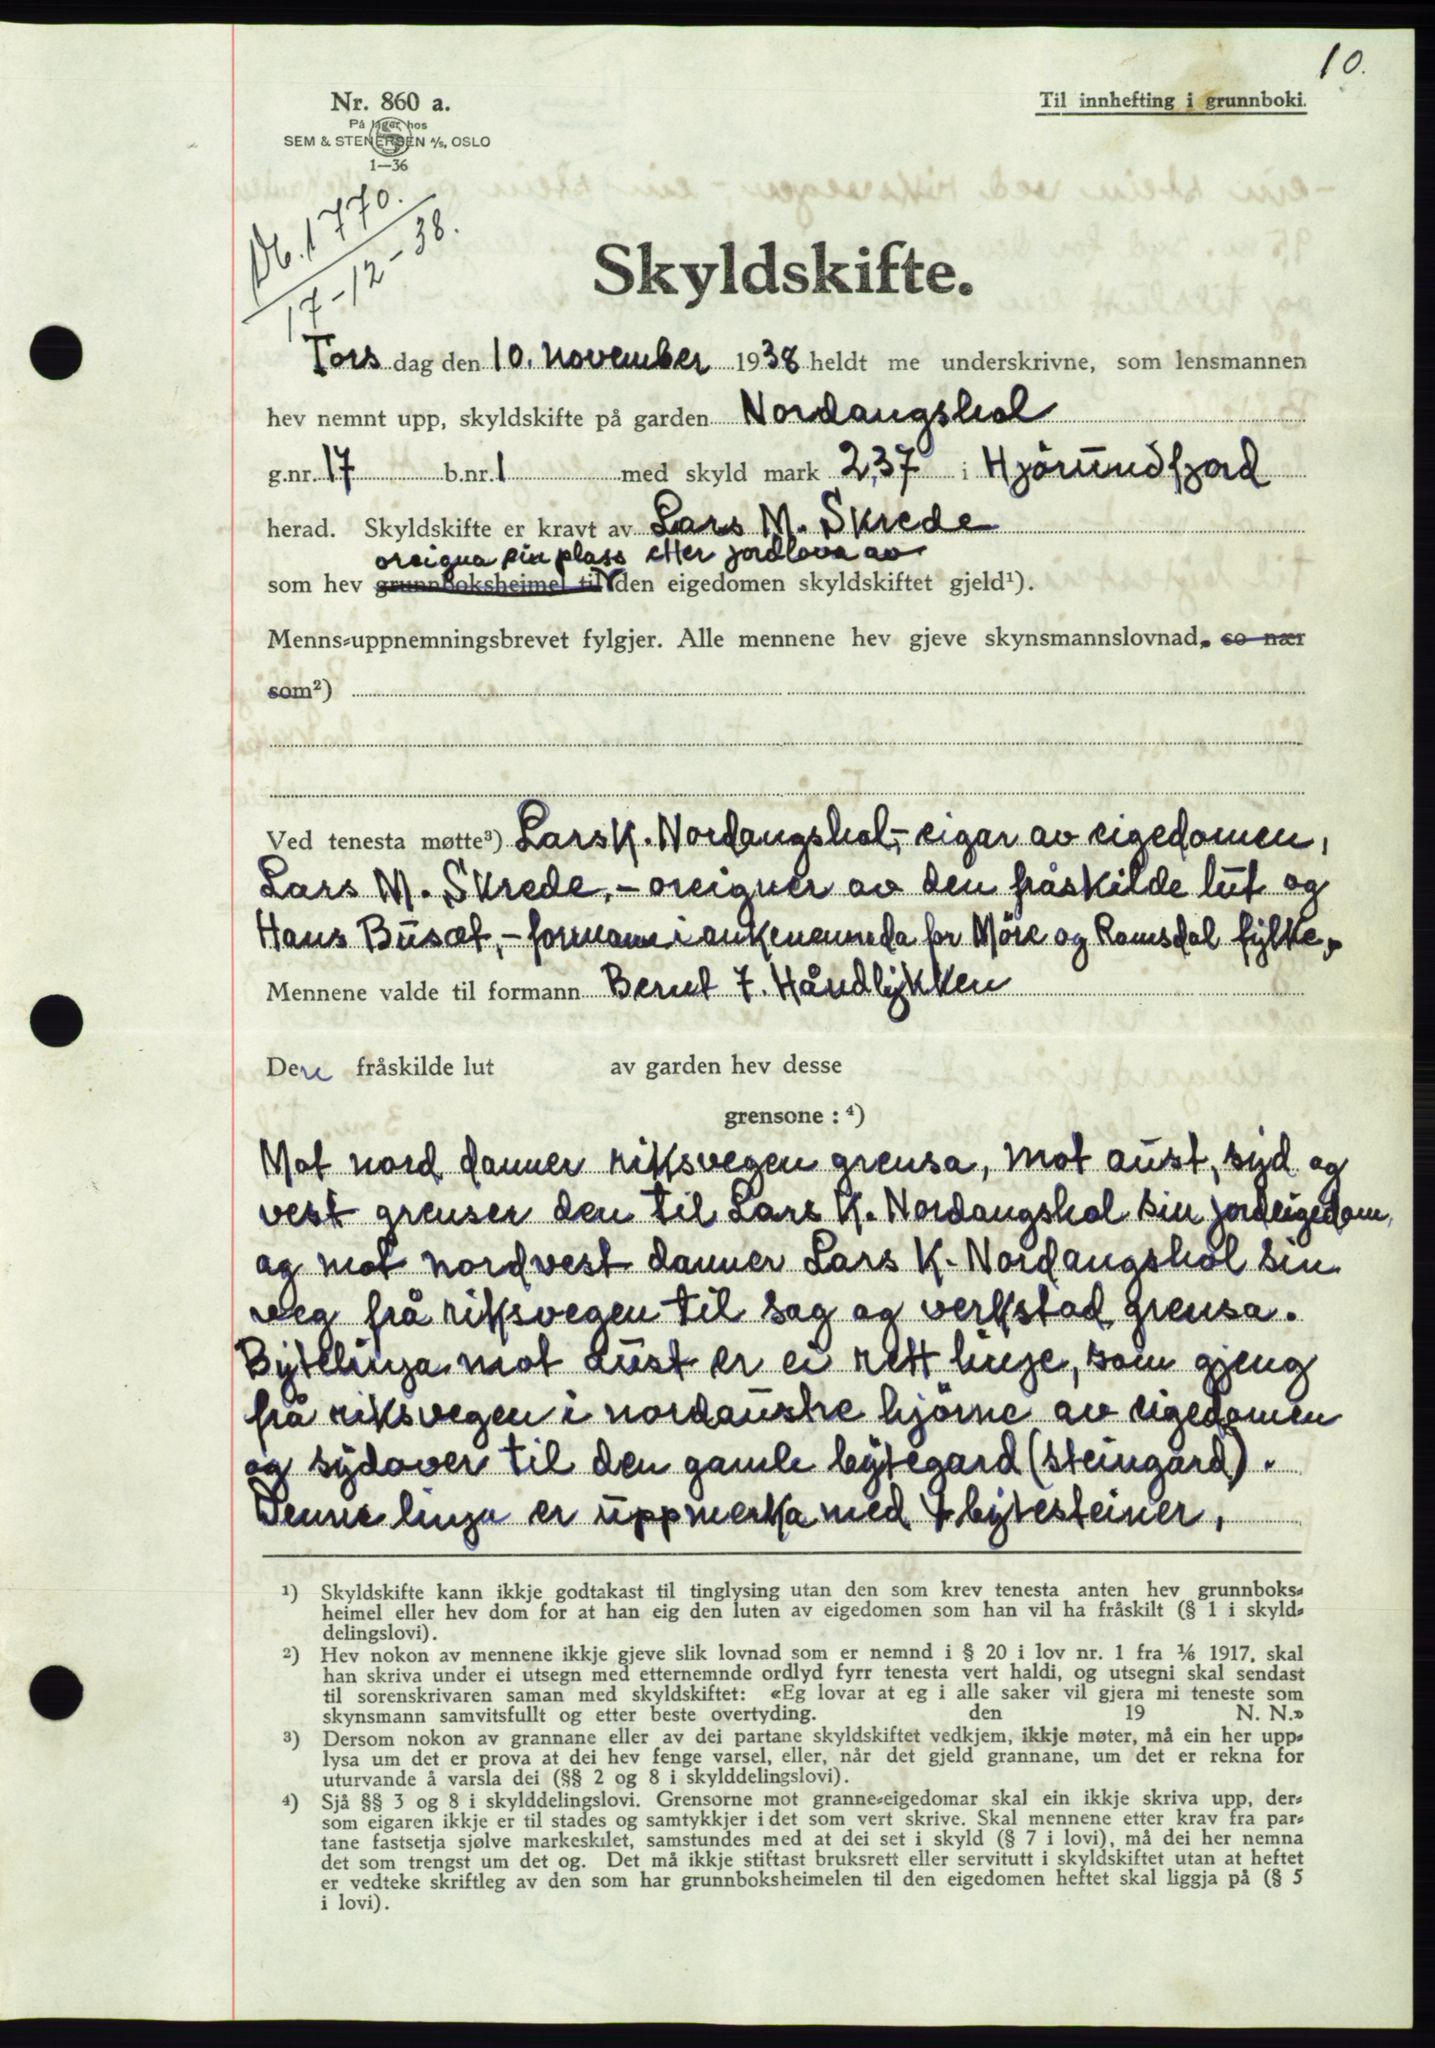 10.
Nr. 860 a.
På lager hos
SEM & STENERSEN A/S, OSLO
1—36
Til innhefting i grunnboki.
Nb. 1770.
17-12-38.
Skyldskifte.
Tors dag den 10. november 1938 heldt me underskrivne, som lensmannen
hev nemnt upp, skyldskifte på garden Nordangshol
g.nr. 17 b.nr. 1 med skyld mark 2,37 i Hjörundfjord
herad. Skyldskifte er kravt av Lars M. Skrede
oreigna ein plass etter jordlova av
som hev grunnboksheimel til den eigedomen skyldskiftet gjeld¹).
Menns-uppnemningsbrevet fylgjer. Alle mennene hev gjeve skynsmannslovnad, so nær
som²)
Ved tenesta møtte³) Lars K. Nordangshol,- eigar av eigedomen,
Lars M. Skrede,- oreigner av den fråskilde lut og
Hans Busæt,- formann i ankenemnda for Möre og Romsdal fylke.
Mennene valde til formann Bernt 7. Håndlykken
Den fråskilde lut av garden hev desse
grensone : ⁴)
Mot nord danner riksvegen grensa, mot aust, syd og
vest grenser den til Lars K. Nordangshol sin jordeigedom,
og mot nordvest danner Lars K. Nordangshol sin
veg frå riksvegen til sag og verkstad grensa.
Bytelinja mot aust er ei rett linje, som gjeng
frå riksvegen i nordaustre hjörne av eigedomen
og sydover til den gamle bytegard (steingard).
Denne linja er uppmerka med 4 bytesteiner,
¹) Skyldskifte kann ikkje godtakast til tinglysing utan den som krev tenesta anten hev grunnboks-
heimel eller hev dom for at han eig den luten av eigedomen som han vil ha fråskilt (§ 1 i skyld-
delingslovi).
²) Hev nokon av mennene ikkje gjeve slik lovnad som er nemnd i § 20 i lov nr. 1 fra ⅙ 1917, skal
han skriva under ei utsegn med etternemnde ordlyd fyrr tenesta vert haldi, og utsegni skal sendast
til sorenskrivaren saman med skyldskiftet: «Eg lovar at eg i alle saker vil gjera mi teneste som
skynsmann samvitsfullt og etter beste overtyding. den 19 N. N.»
³) Dersom nokon av grannane eller av dei partane skyldskiftet vedkjem, ikkje møter, må ein her upp-
lysa um det er prova at dei hev fenge varsel, eller, når det gjeld grannane, um det er rekna for
uturvande å varsla dei (§§ 2 og 8 i skylddelingslovi).
⁴) Sjå §§ 3 og 8 i skylddelingslovi. Grensorne mot granne-eigedomar skal ein ikkje skriva upp, der-
som eigaren ikkje er til stades og samtykkjer i det som vert skrive. Skal mennene etter krav fra par-
tane fastsetja sjølve markeskilet, samstundes med at dei set i skyld (§ 7 i lovi), må dei her nemna
det som trengst um det og. Det må ikkje stiftast bruksrett eller servitutt i skyldskiftet utan at heftet
er vedteke skriftleg av den som har grunnboksheimelen til den eigedomen heftet skal liggja på (§ 5
i lovi).